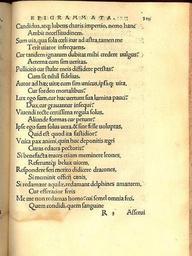 EPIGRAMMATA.
Candidus, atque lubens charis impertio, nemo hanc
Ambit necessitudinem.
Sum uia, qua sola cœli itur ad astra, tamen me
Terit uiator infrequens.
Cur tandem ignarum dubitat mihi credere uulgus?
Aeterna cum sim ueritas.
Pollicitis cur stulte meis diffidere
Cum sit nihil fidelius.
Autor ad hæc uitæ cum sim unicus, ipsaque uita,
Cur sordeo mortalibus?
Lux ego sum, cur huc uertunt sua lumina pauci?
Dux, cur grauantur insequi?
Viuendi recte certissima regula solus,
Aliunde formas cur petunt?
Ipse ego sum solus uera, & sine felle uoluptas,
Quid est quod ita fastidior?
Vnica pax animi, quin huc deponitis ægri
Curas edaces pectoris?
Si benefacta meminere leones,
Referunt beluæ uicem,
Respondere feri merito didicere dracones,
Si meminit officii canis,
Si redamant aquilæ, redamant delphines amantem,
Cur efferatior feris
Me me non redamas homo? cui semel omnia feci,
Quem condidi, quem sanguine
R Asserui